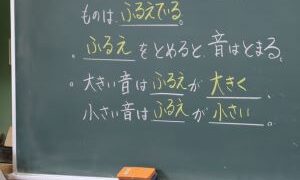 ものは、ふるえている。
。ふるえをとめると、音はとまる。
。大きい音はふるえが大きく、
小さい音はふるえが小さい。